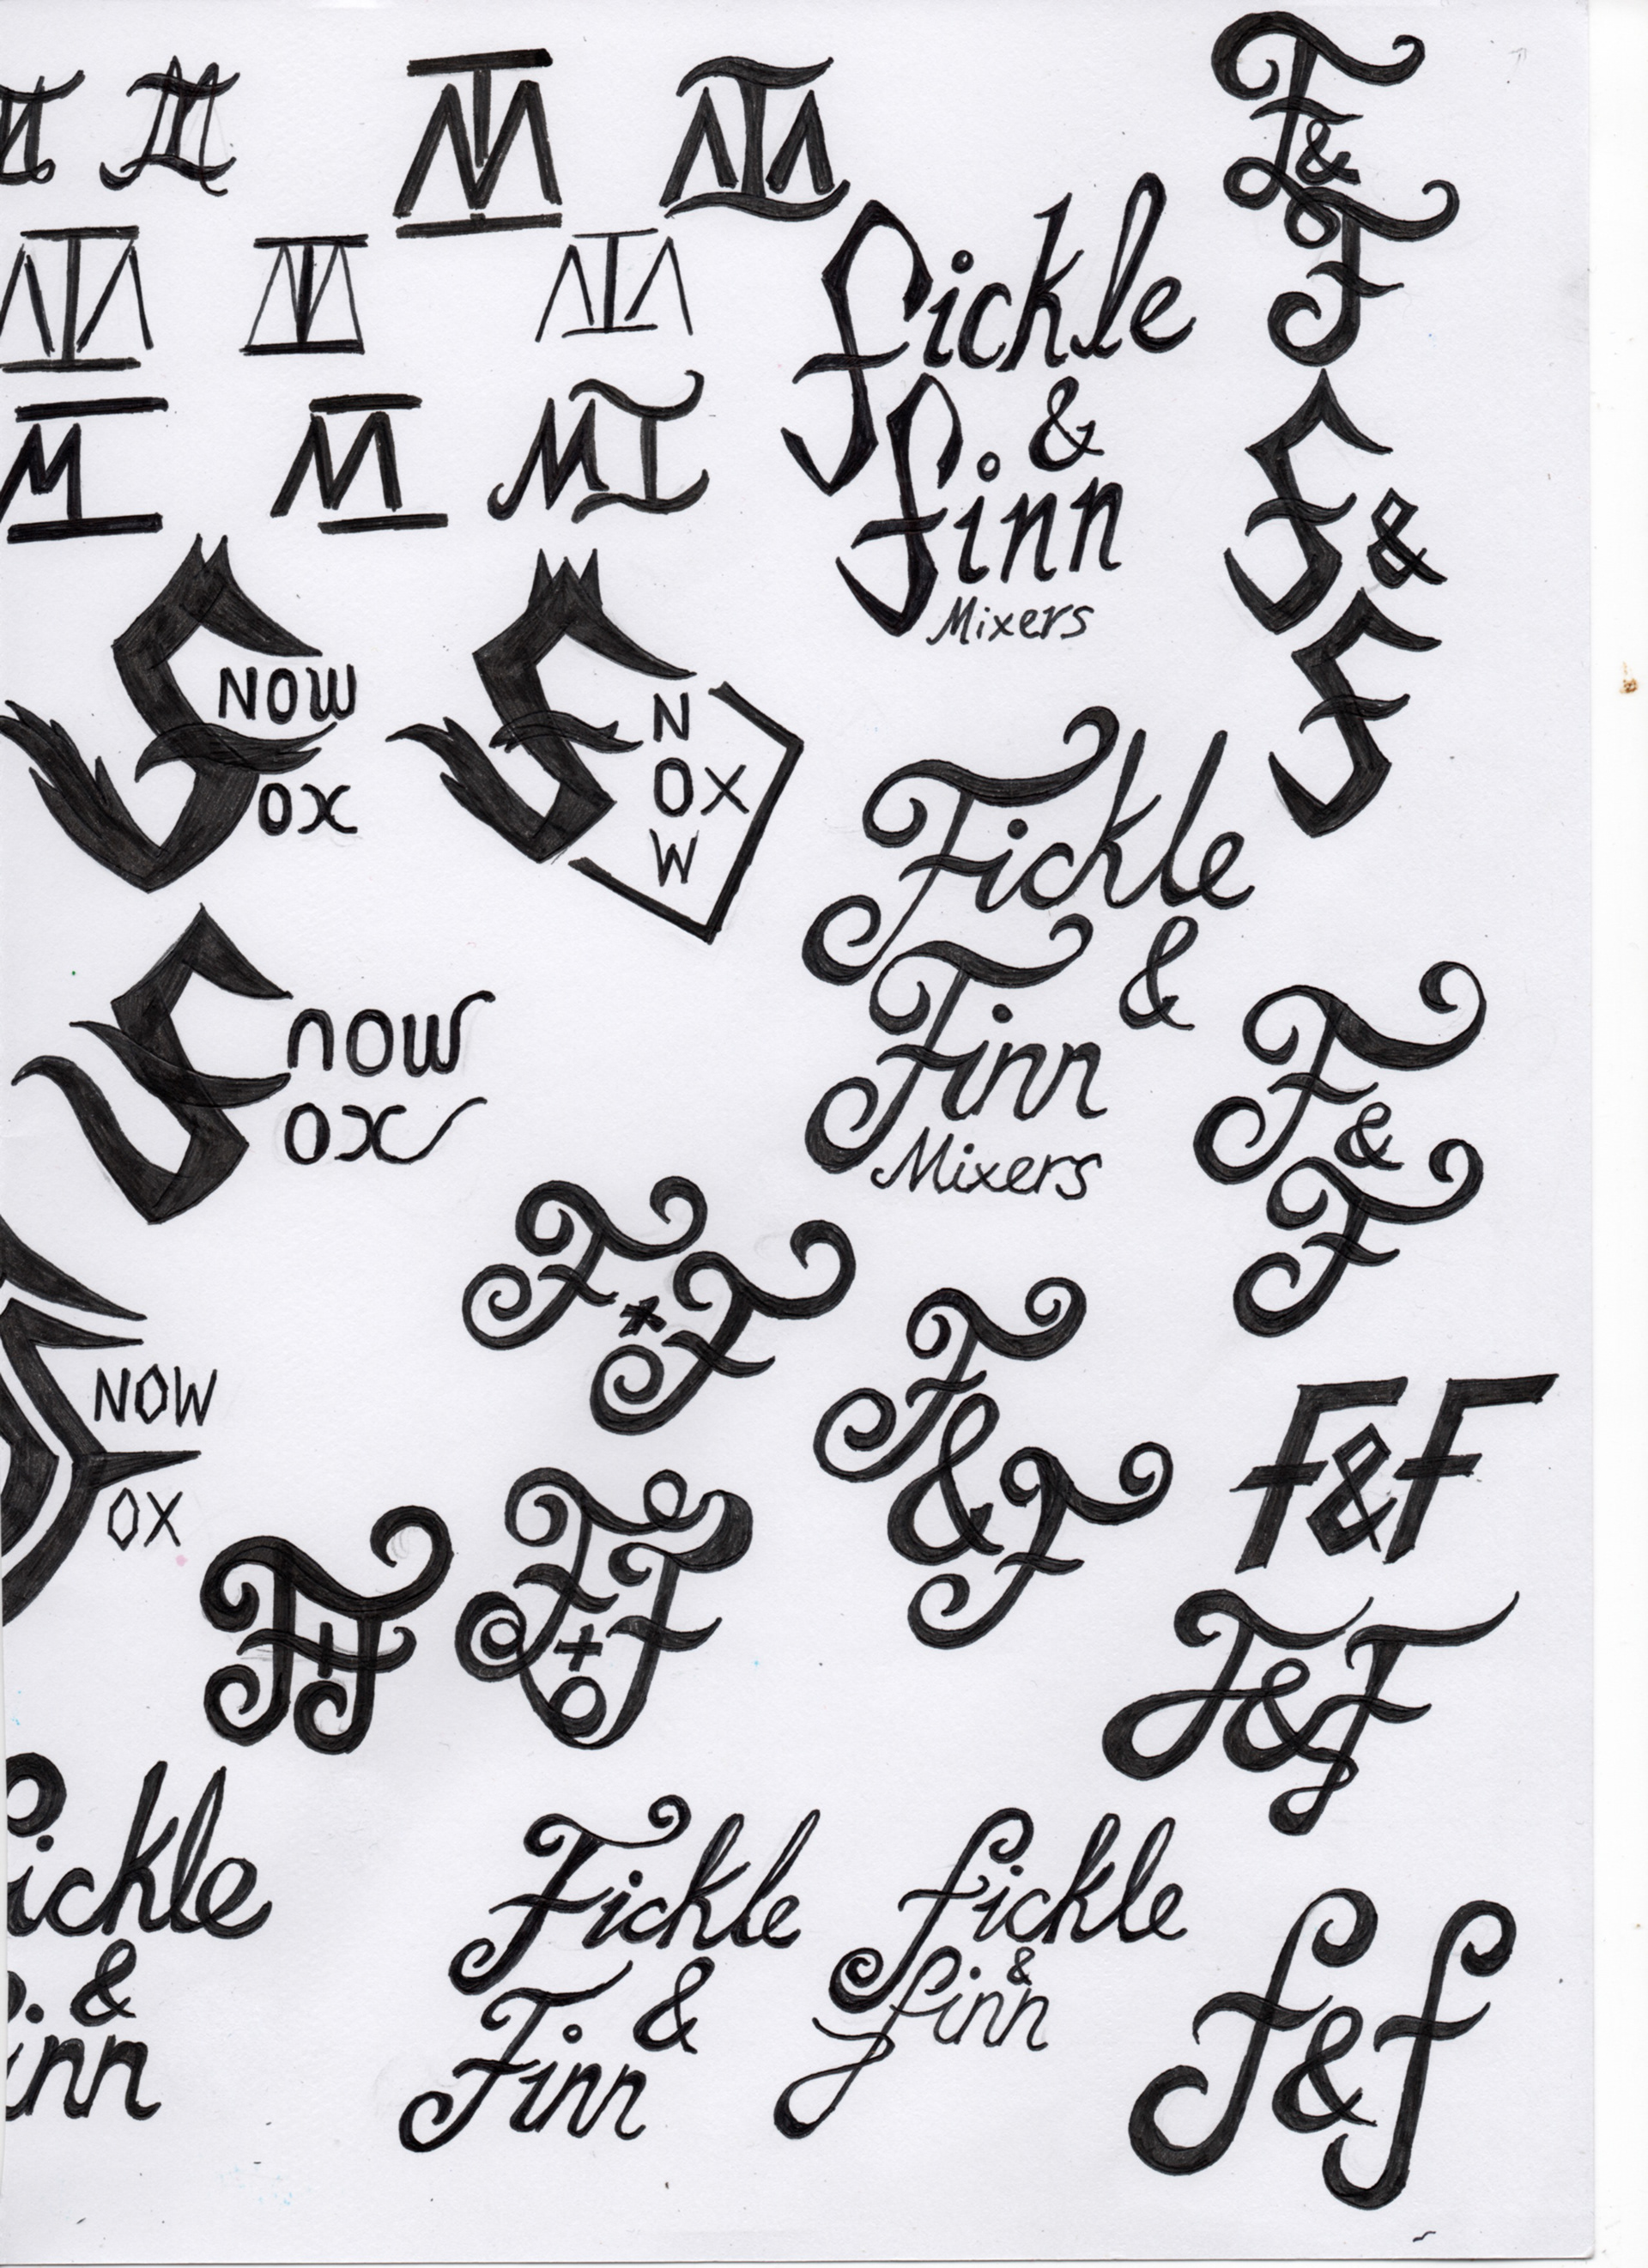 F
&
F
Fickle
&
Finn
Mixers
F &
F
M
M
MI
SNOW
FOX
SNOW
FOX
Snow
Fox
NOW
OX
Fickle
&
Finn
Mixers
F
&
F
F + F
F
&
F
F&F
F + F
F + F
F&F
ickle
&
inn
Fickle
&
Finn
fickle
&
finn
f&f